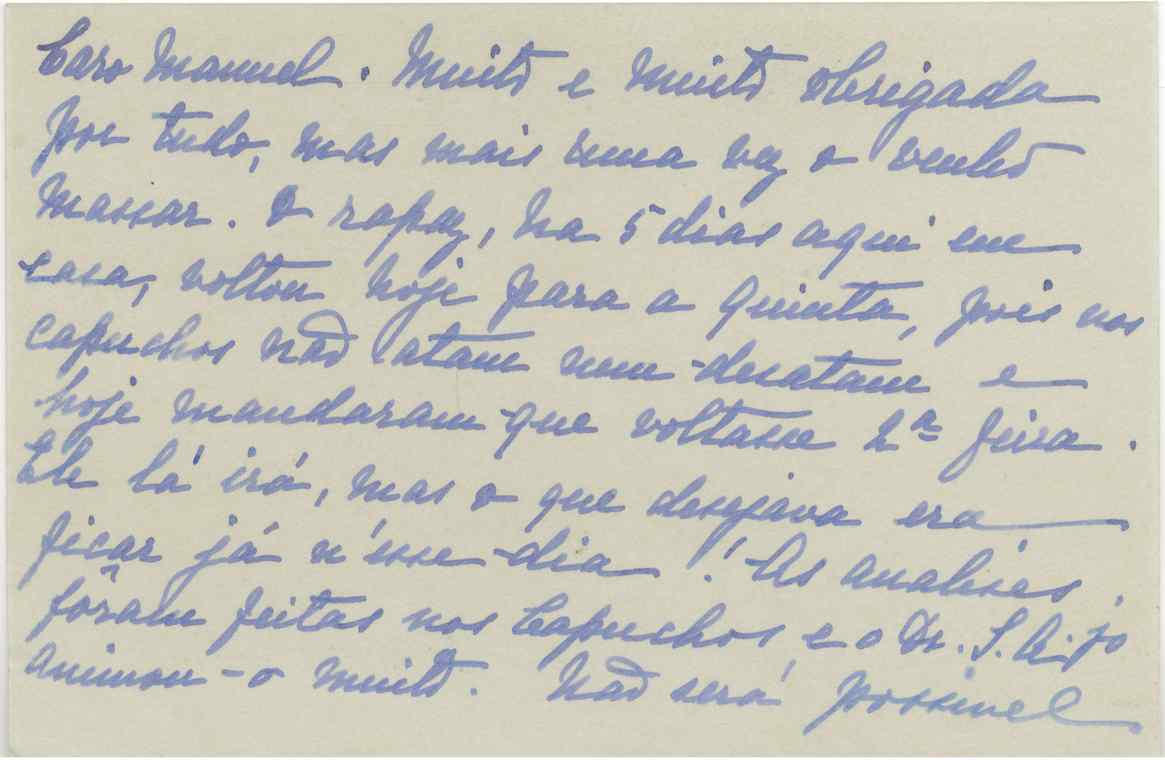 Caro Manuel. Muito e muito obrigada
por tudo, mas mais uma vez o venho
massar. O rapaz, ha 5 dias aqui em
casa, voltou hoje para a Quinta, pois nos
Capuchos não atam nem desatam e
hoje mandaram que voltasse 2ª feira.
Ele lá irá, mas o que desejava era
ficar já n'esse dia! As analises
fôram feitas nos Capuchos, e o Dr. S.
animou-o muito. Não será possivel